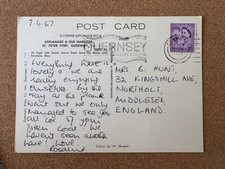 7.6.67
POST CARD
CORRESPONDENCE
ESPLANADE & OLD HARBOUR,
ST. PETER PORT, GUERNSEY
GUERNSEY
Everything here is
lovely & we are
really enjoying
ourselves by the
way at the plane
want but we only
managed to see you
all coz of your
green coat. We
haven't seen another
here! Love
Rosalind
MRS B. HUNT,
32 KINGSHILL AVE,
NORTHOLT,
MIDDLESEX,
ENGLAND.